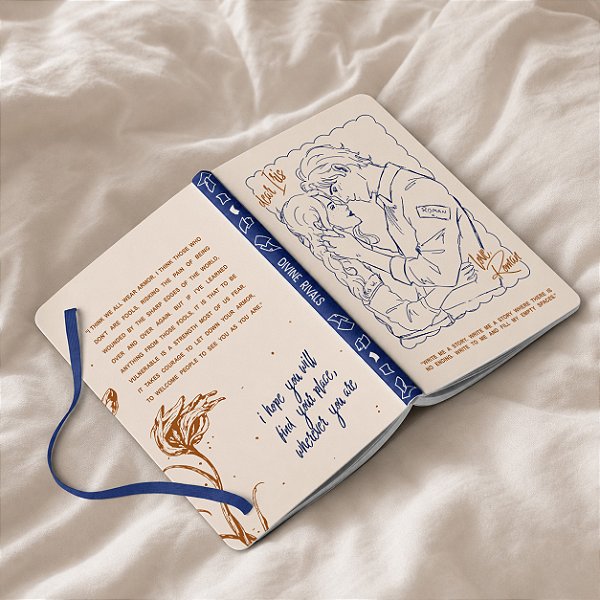 "I THINK WE ALL WEAR ARMOR. I THINK THOSE WHO
DON'T ARE FOOLS, RISKING THE PAIN OF BEING
WOUNDED BY THE SHARP EDGES OF THE WORLD,
OVER AND OVER AGAIN. BUT IF I'VE LEARNED
ANYTHING FROM THOSE FOOLS, IT IS THAT TO BE
VULNERABLE IS A STRENGTH MOST OF US FEAR.
IT TAKES COURAGE TO LET DOWN YOUR ARMOR,
TO WELCOME PEOPLE TO SEE YOU AS YOU ARE."
i hope you will
find your place,
wherever you are
DIVINE RIVALS
Dear Iris
ROMAN
Love,
Roman
"WRITE ME A STORY WHERE THERE IS
NO ENDING. WRITE TO ME AND FILL MY EMPTY SPACES."